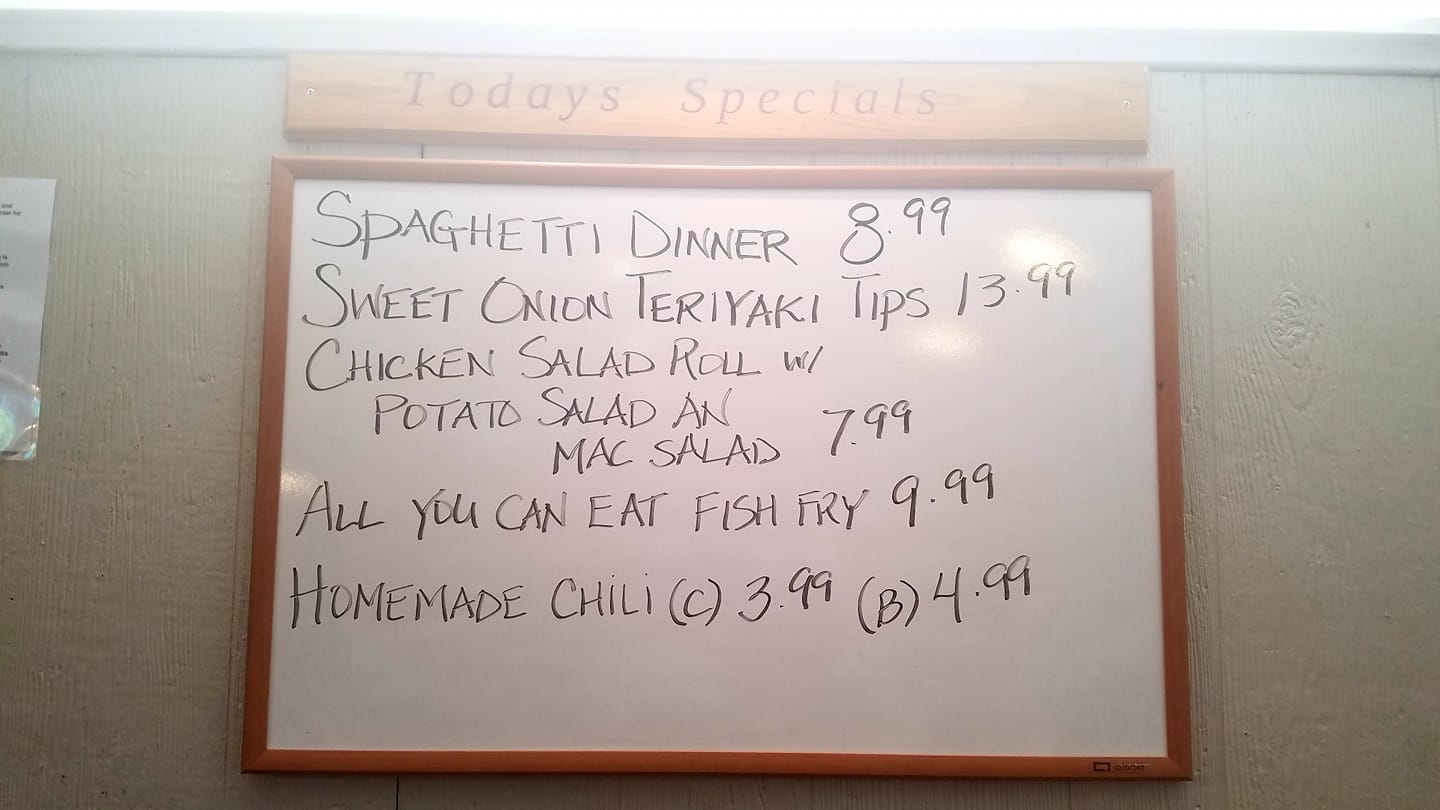 Todays Specials
SPAGHETTI DINNER 8.99
SWEET ONION TERIYAKI TIPS 13.99
CHICKEN SALAD ROLL w/
POTATO SALAD AN
MAC SALAD 7.99
ALL YOU CAN EAT FISH FRY 9.99
HOMEMADE CHILI (C) 3.99 (B) 4.99